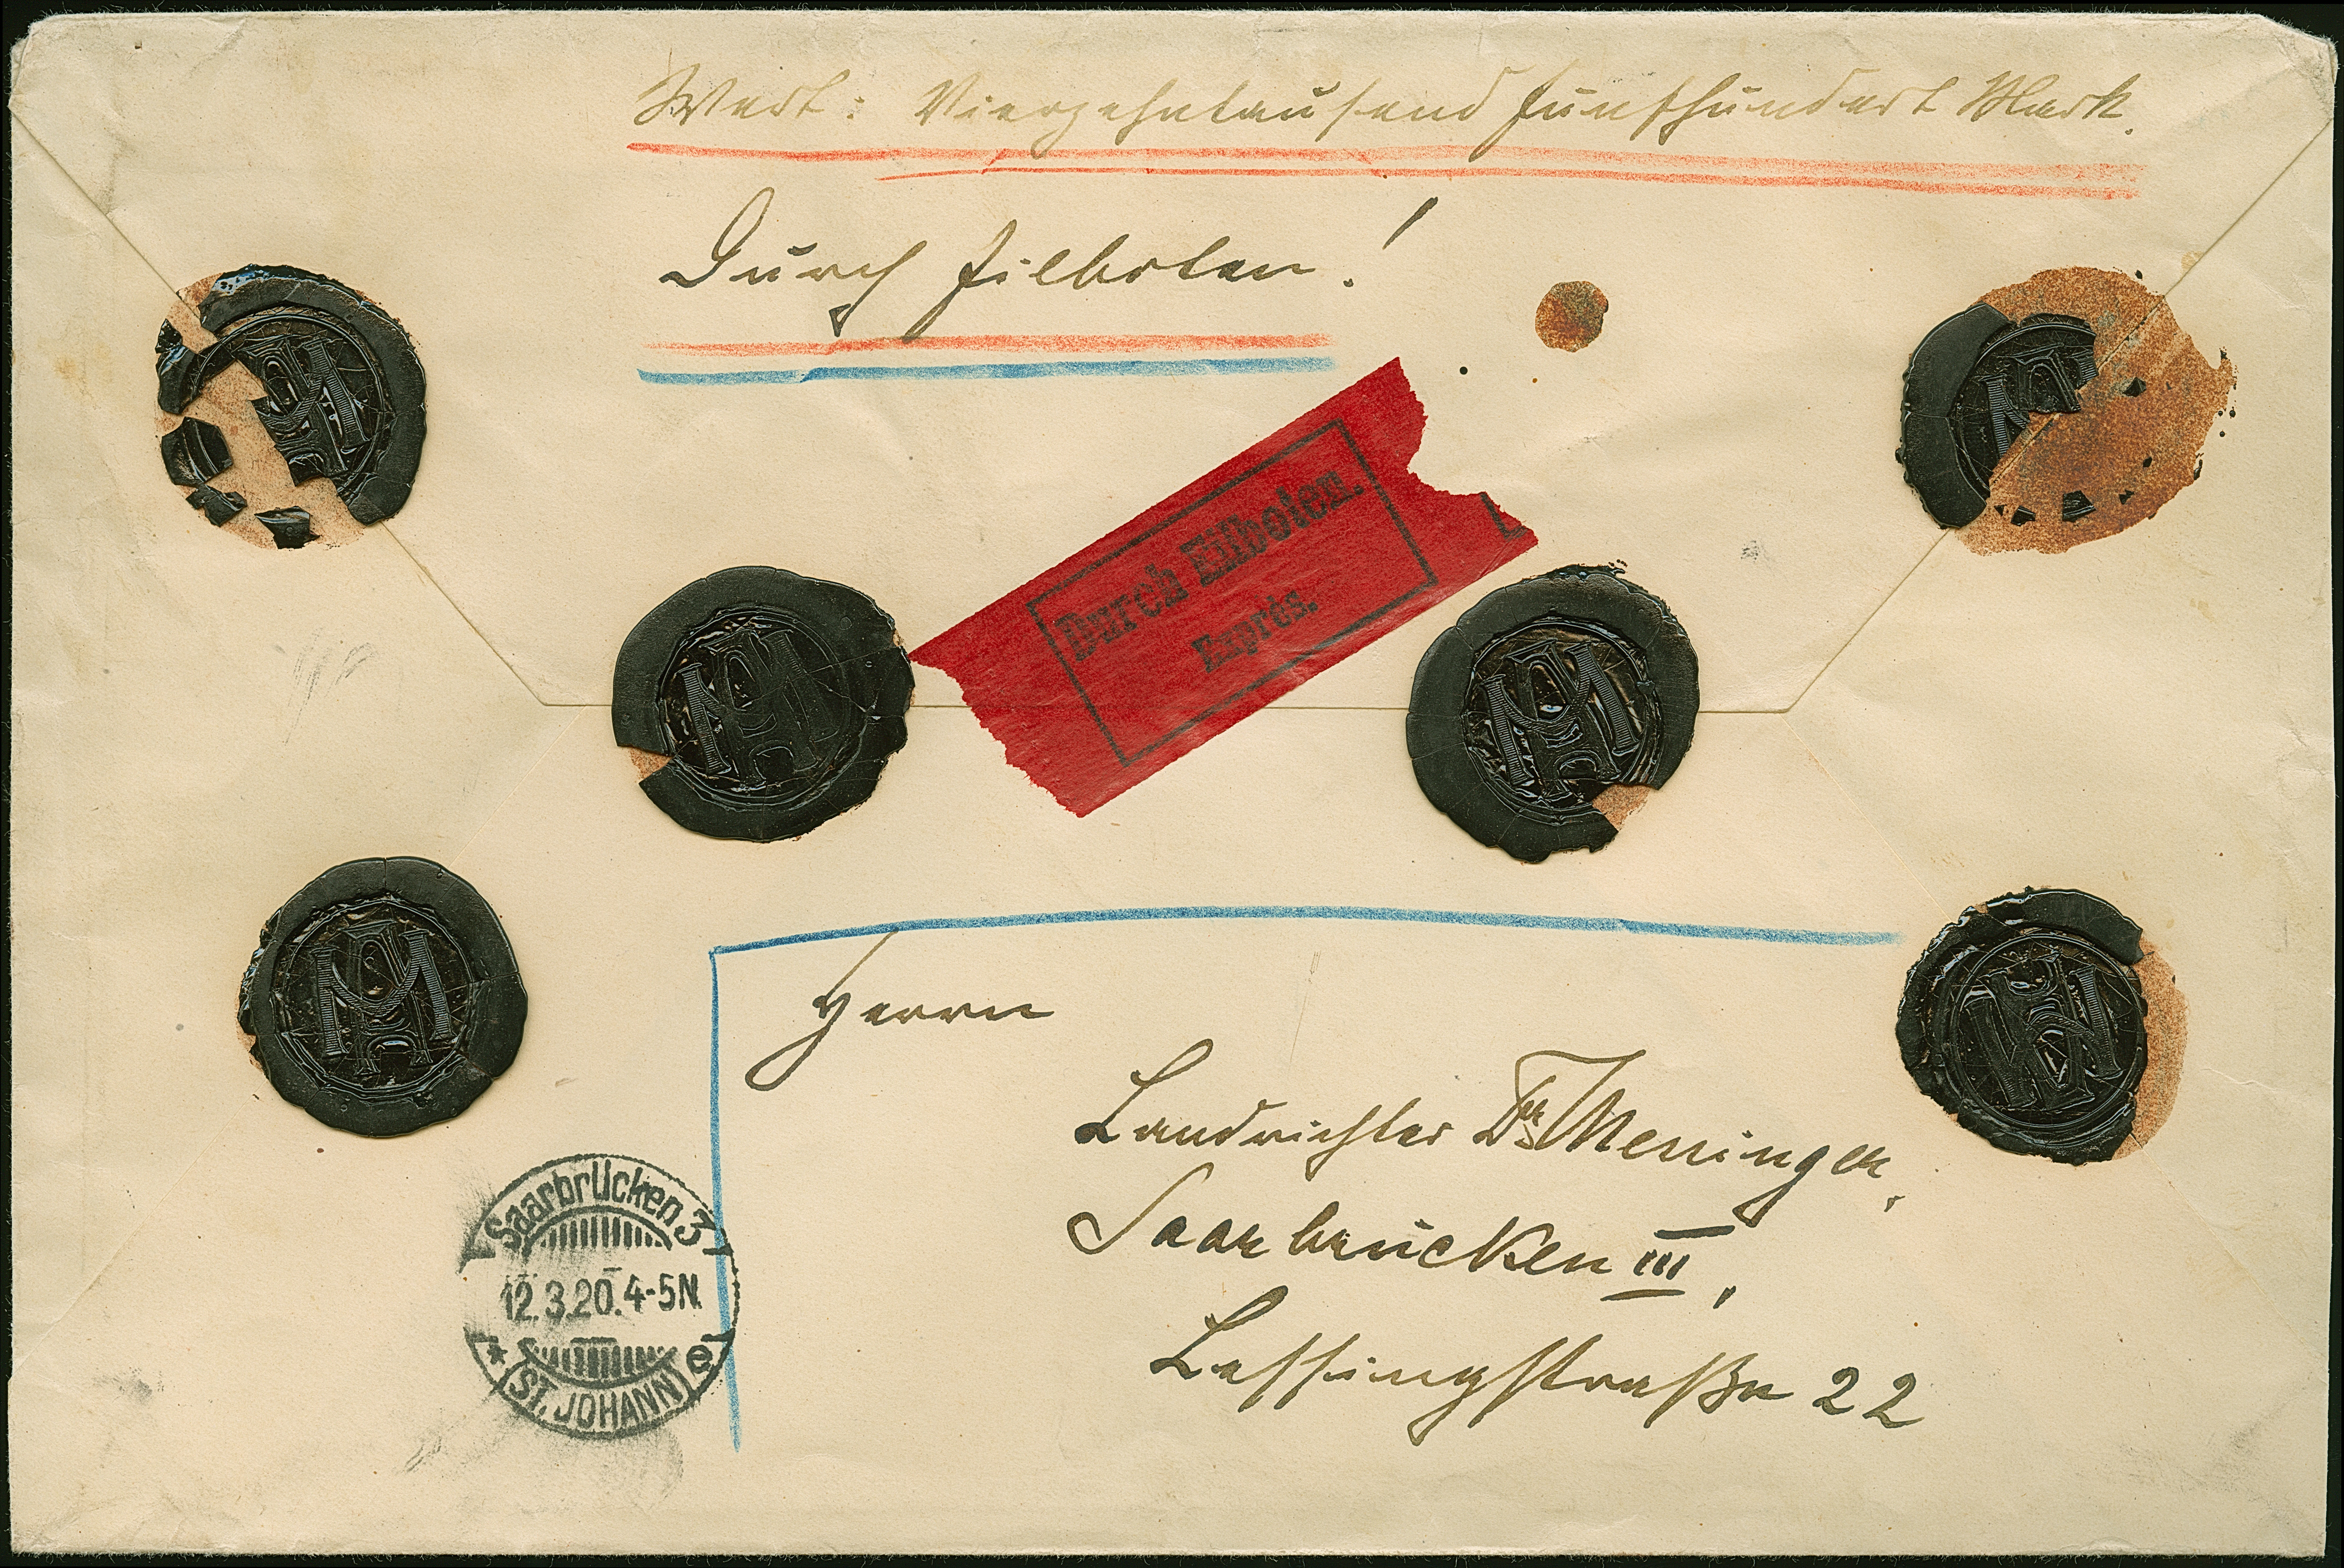 Wert: Vierzehntausend fünfhundert Mark.
Durch Eilboten!
Durch Eilboten.
Exprès.
Herrn
Landrichter Dr. Messinger,
Saarbrücken III,
Lessingstraße 22
Saarbrücken 3
12.3.20.4-5N.
* e
(ST. JOHANN)